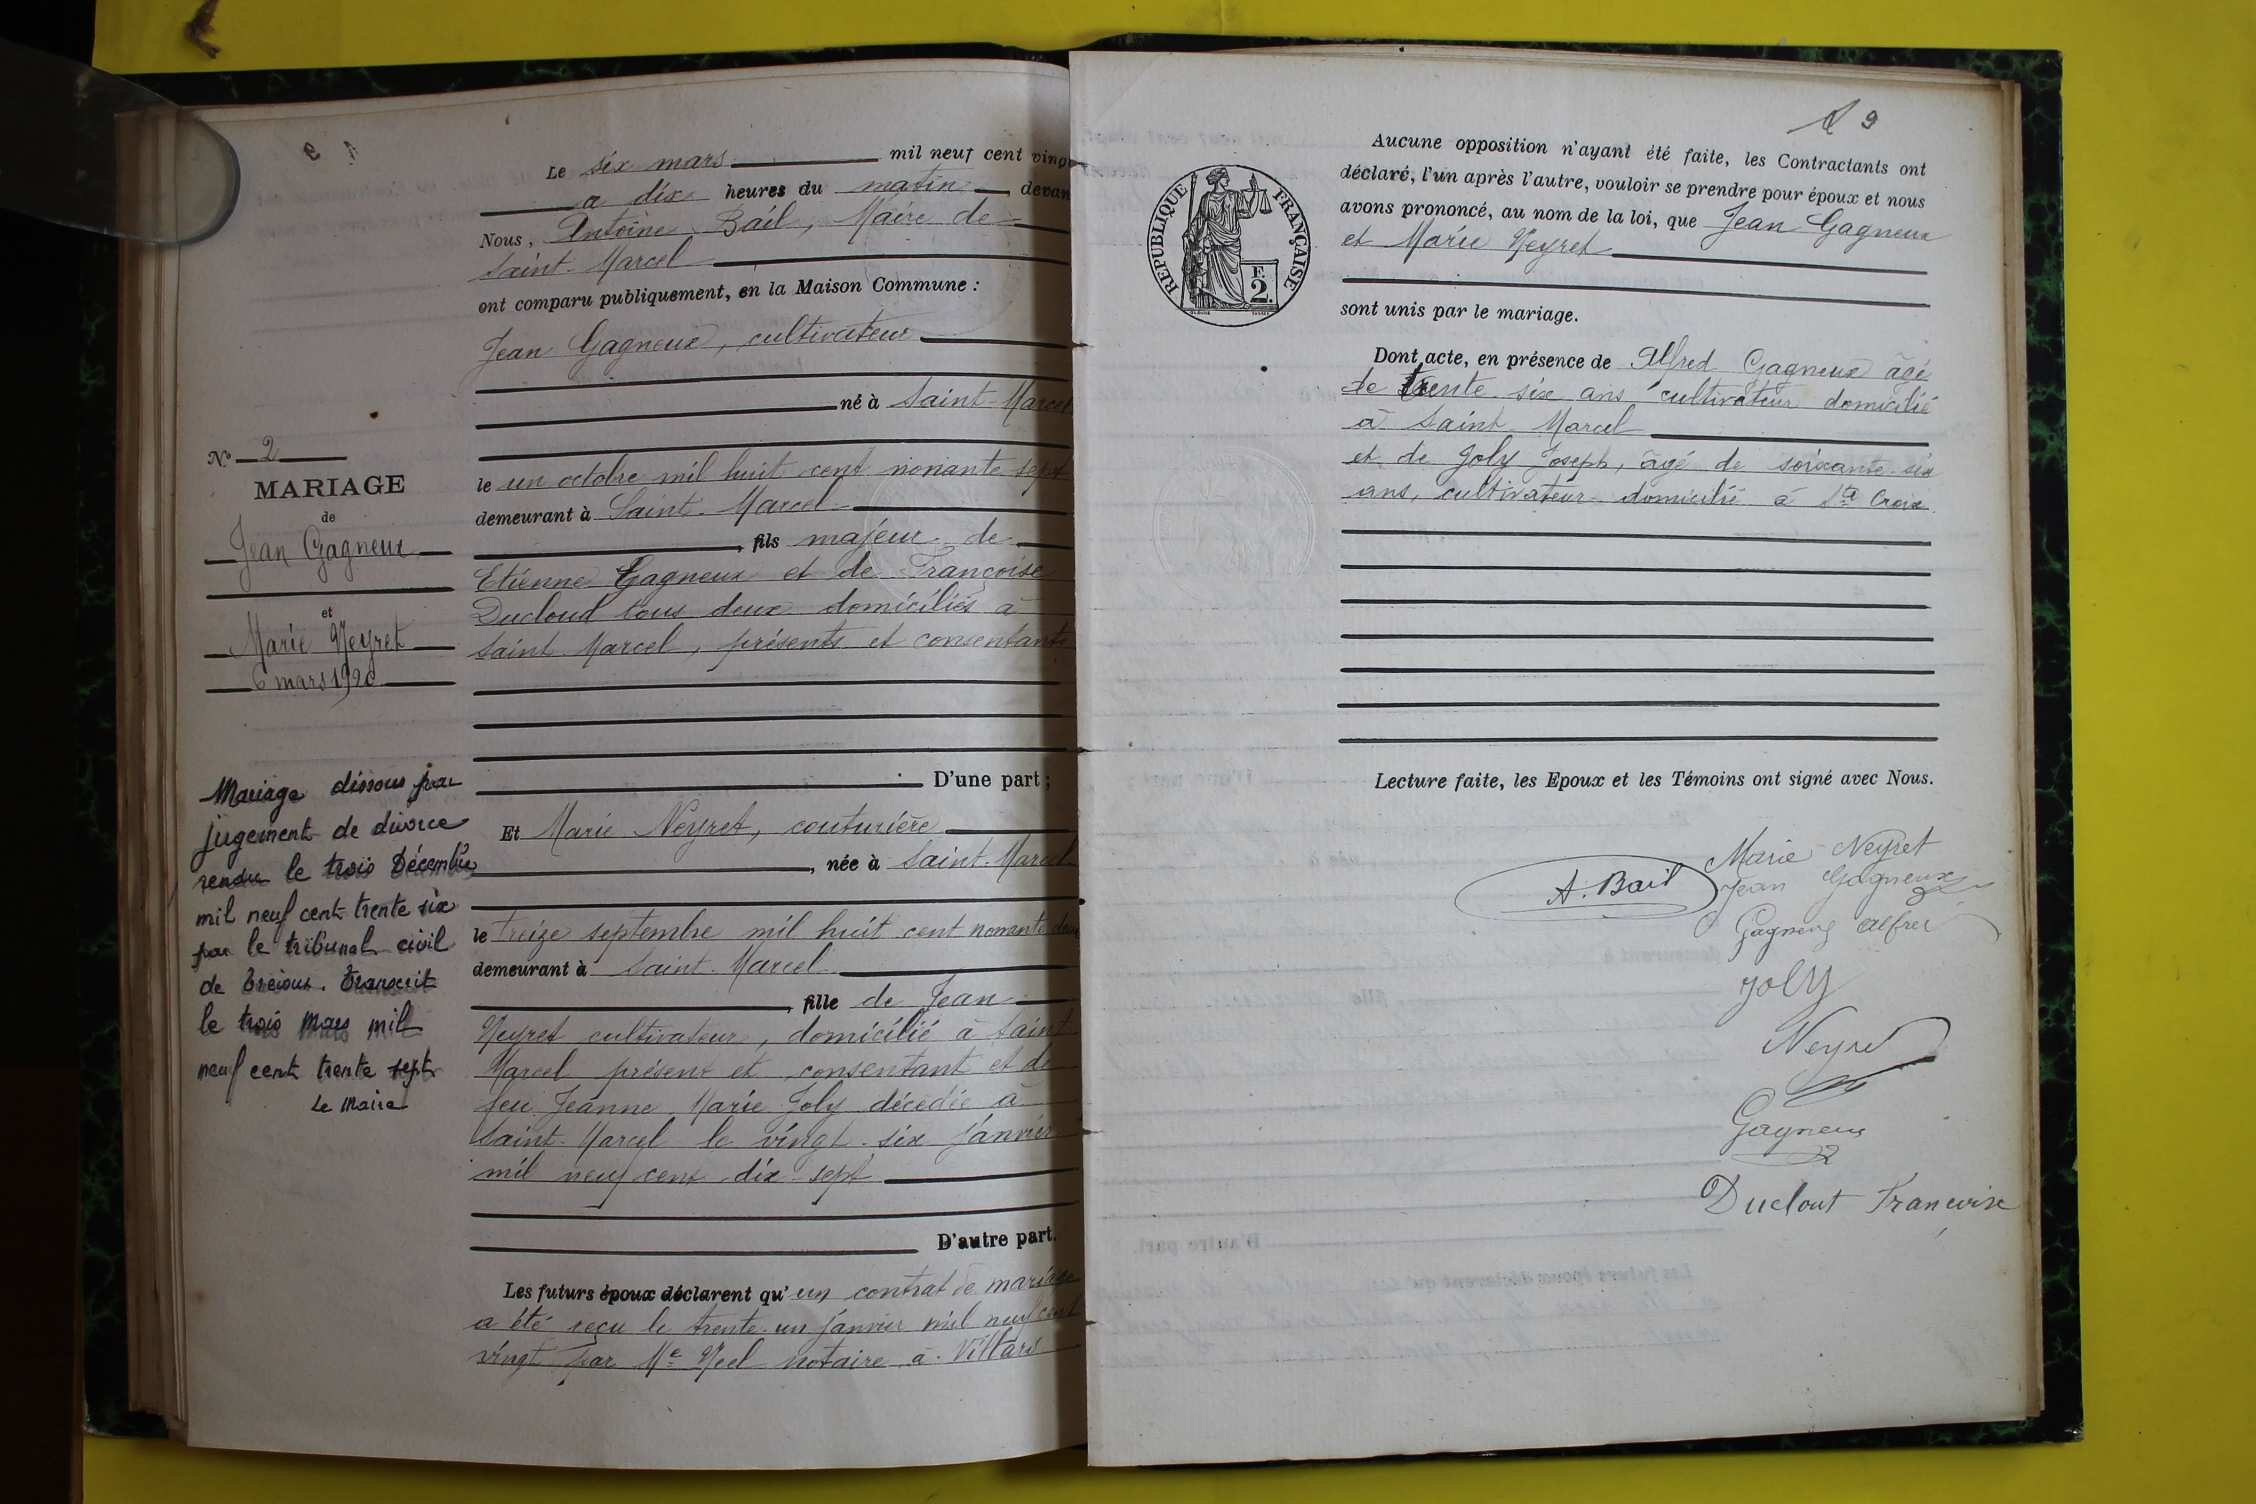 Le six mars mil neuf cent vingt
à dix heures du matin, devant
Nous, Antoine Bail, Maire de
Saint-Marcel
ont comparu publiquement, en la Maison Commune :
Jean Gagneux, cultivateur
né à Saint-Marcel
le un octobre mil huit cent nonante sept
demeurant à Saint-Marcel
, fils majeur de
Etienne Gagneux et de Françoise
Ducloud tous deux domiciliés à
Saint Marcel, présents et consentants
D'une part ;
Et Marie Neyret, couturière
, née à Saint-Marcel
le treize septembre mil huit cent nonante deux
demeurant à Saint-Marcel
, fille de Jean
Neyret cultivateur, domicilié à Saint
Marcel présent et consentant et de
feu Jeanne Marie Joly décédée à
Saint-Marcel le vingt-six janvier
mil neuf cent dix-sept
D'autre part.
Les futurs époux déclarent qu'un contrat de mariage
a été reçu le trente-un janvier mil neuf cent
vingt par Me notaire à Villars
No 2
MARIAGE
de
Jean Gagneux
et
Marie Neyret
6 mars 1920
Mariage dissous par
jugement de divorce
rendu le trois Décembre
mil neuf cent trente six
par le tribunal civil
de Trévoux. Transcrit
le trois Mars mil
neuf cent trente sept
Le Maire
9
RÉPUBLIQUE FRANÇAISE
F.
2.
Aucune opposition n'ayant été faite, les Contractants ont
déclaré, l'un après l'autre, vouloir se prendre pour époux et nous
avons prononcé, au nom de la loi, que Jean Gagneux
et Marie Neyret
sont unis par le mariage.
Dont acte, en présence de Alfred Gagneux âgé
de trente-six ans cultivateur domicilié
à Saint-Marcel
et de Joly Joseph, âgé de soixante-six
ans, cultivateur domicilié à Ste Croix.
Lecture faite, les Epoux et les Témoins ont signé avec Nous.
Marie Neyret
A. Bail
Jean Gagneux
Gagneux Alfred
Joly
Neyret
Gagneux
Duclout Francoise